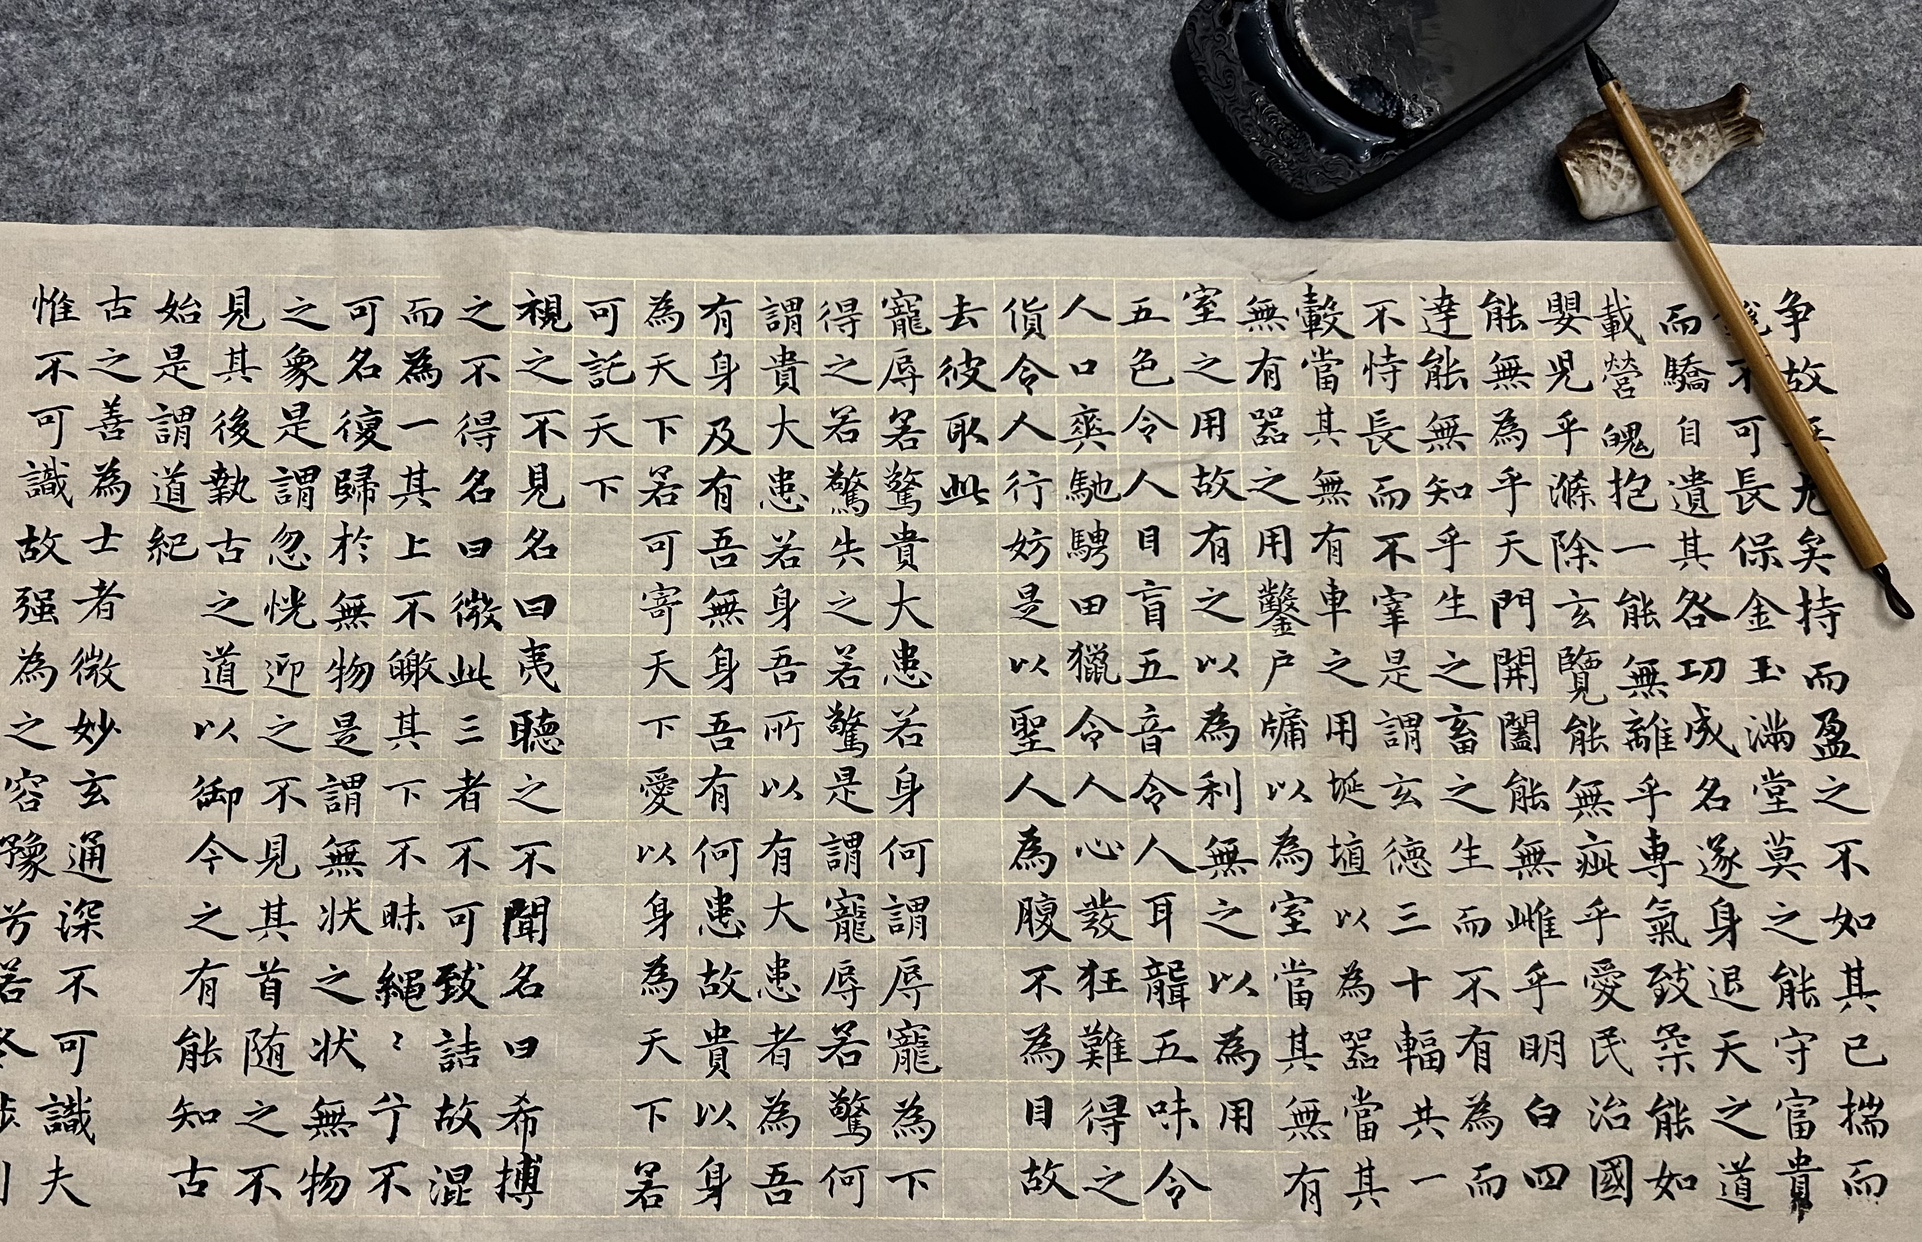 争故無尤矣持而盈之不如其已揣而
銳不可長保金玉滿堂莫之能守富貴
而驕自遺其咎功成名遂身退天之道
載營魄抱一能無離乎專氣致柔能如
嬰兒乎滌除玄覽能無疵乎愛民治國
能無為乎天門開闔能無雌乎明白四
達能無知乎生之畜之生而不有為而
不恃長而不宰是謂玄德三十輻共一
轂當其無有車之用埏埴以為器當其
無有器之用鑿戶牖以為室當其無有
室之用故有之以為利無之以為用
五色令人目盲五音令人耳聾五味令
人口爽馳騁田獵令人心發狂難得之
貨令人行妨是以聖人為腹不為目故
去彼取此
寵辱若驚貴大患若身何謂辱寵為下
得之若驚失之若驚是謂寵辱若驚何
謂貴大患若身吾所以有大患者為吾
有身及有吾無身吾有何患故貴以身
為天下若可寄天下愛以身為天下若
可託天下
視之不見名曰夷聽之不聞名曰希搏
之不得名曰微此三者不可致詰故混
而為一其上不皦其下不昧繩〻兮不
可名復歸於無物是謂無状之状無物
之象是謂忽恍迎之不見其首随之不
見其後執古之道以御今之有能知古
始是謂道紀
古之善為士者微妙玄通深不可識夫
惟不可識故强為之容豫兮若冬